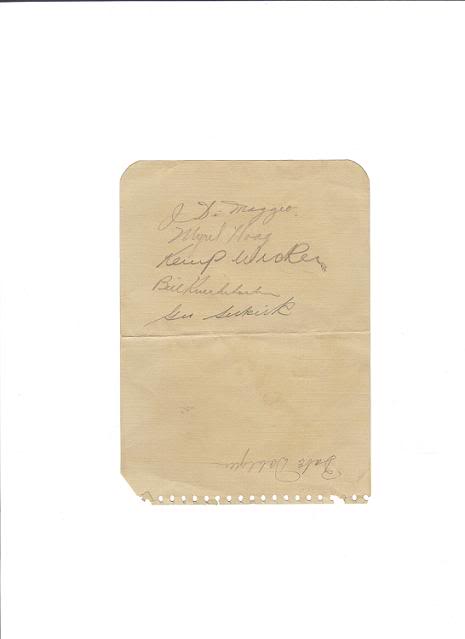 J Di Maggio.
Myril Hoag
Kemp Wicker
Bill Knickerbocker
Geo Selkirk
Babe Dahlgren